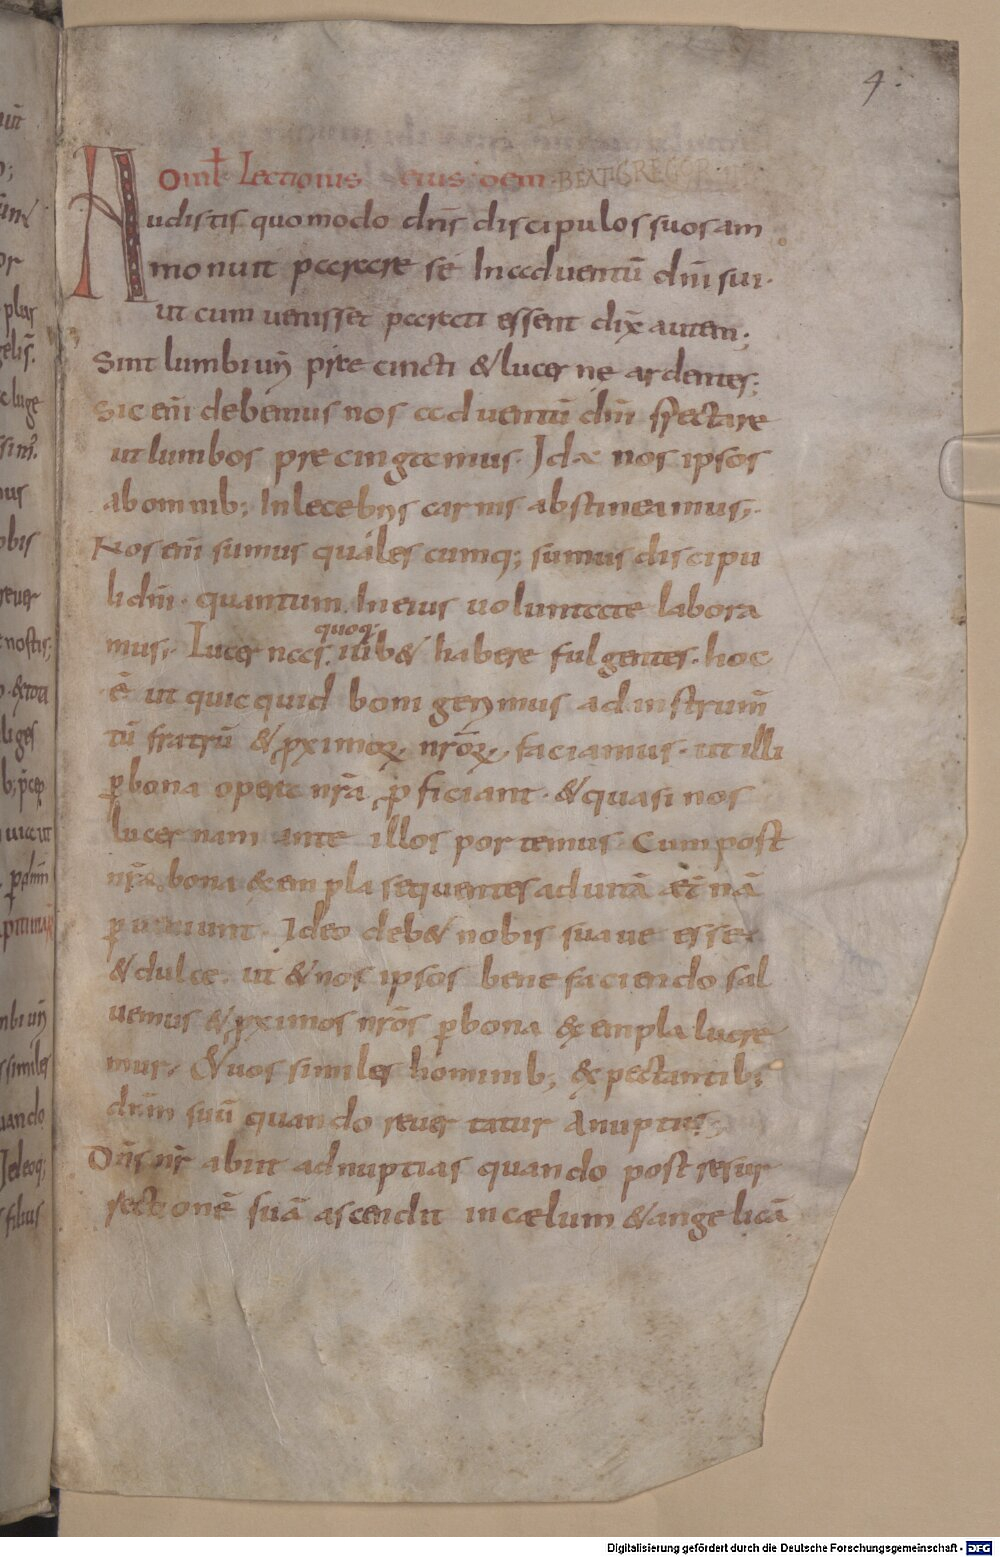 4.
omł Lectionis eiusdem BEATI GREGORII
Audistis quomodo dn̄s discipulos suos am
monuit parare se In aduentū dn̄i sui·
ut cum uenisset parati essent dix̄ autem;
Sint lumbi ur̄i p̄re cincti & lucer ne ardentes;
Sic eni̅ debemus nos ad uentū dn̄i spectare
ut lumbos pre cingamus· Id æ nos ipsos
abomnib; Inlecebris carnis abstineamus;·
Nos eni̅ sumus quales cumq; sumus discipu
li dn̄i· quantum In eius uoluntate labora
mus;· Lucer nas· quoq; iub& habere fulgentes· hoc
ē ut quic quid boni gerimus ad instrum̄
tū fratrū & ꝓximoꝝ nr̄oꝝ, faciamus· ut illi
ꝑ bona opera nr̄a ꝓficiant· & quasi nos
lucer nam ante illos portemus Cum post
nr̄a bona & em pla sequentes ad uitā æt̄nā
ꝑ ueniunt· Ideo deb& nobis suaue esse·
& dulce· ut & nos ipsos bene faciendo sal
uemus & ꝓximos nr̄os ꝑ bona & empla lucre
mur· & uos similes hominib; & pectantib;
dn̄m suū quando reuer tatur A nuptiis;
Dn̄s nr̄ abiit ad nuptias quando post resur
rectionē suā ascendit in cælum & angelicā
Digitalisierung gefördert durch die Deutsche Forschungsgemeinschaft - DFG